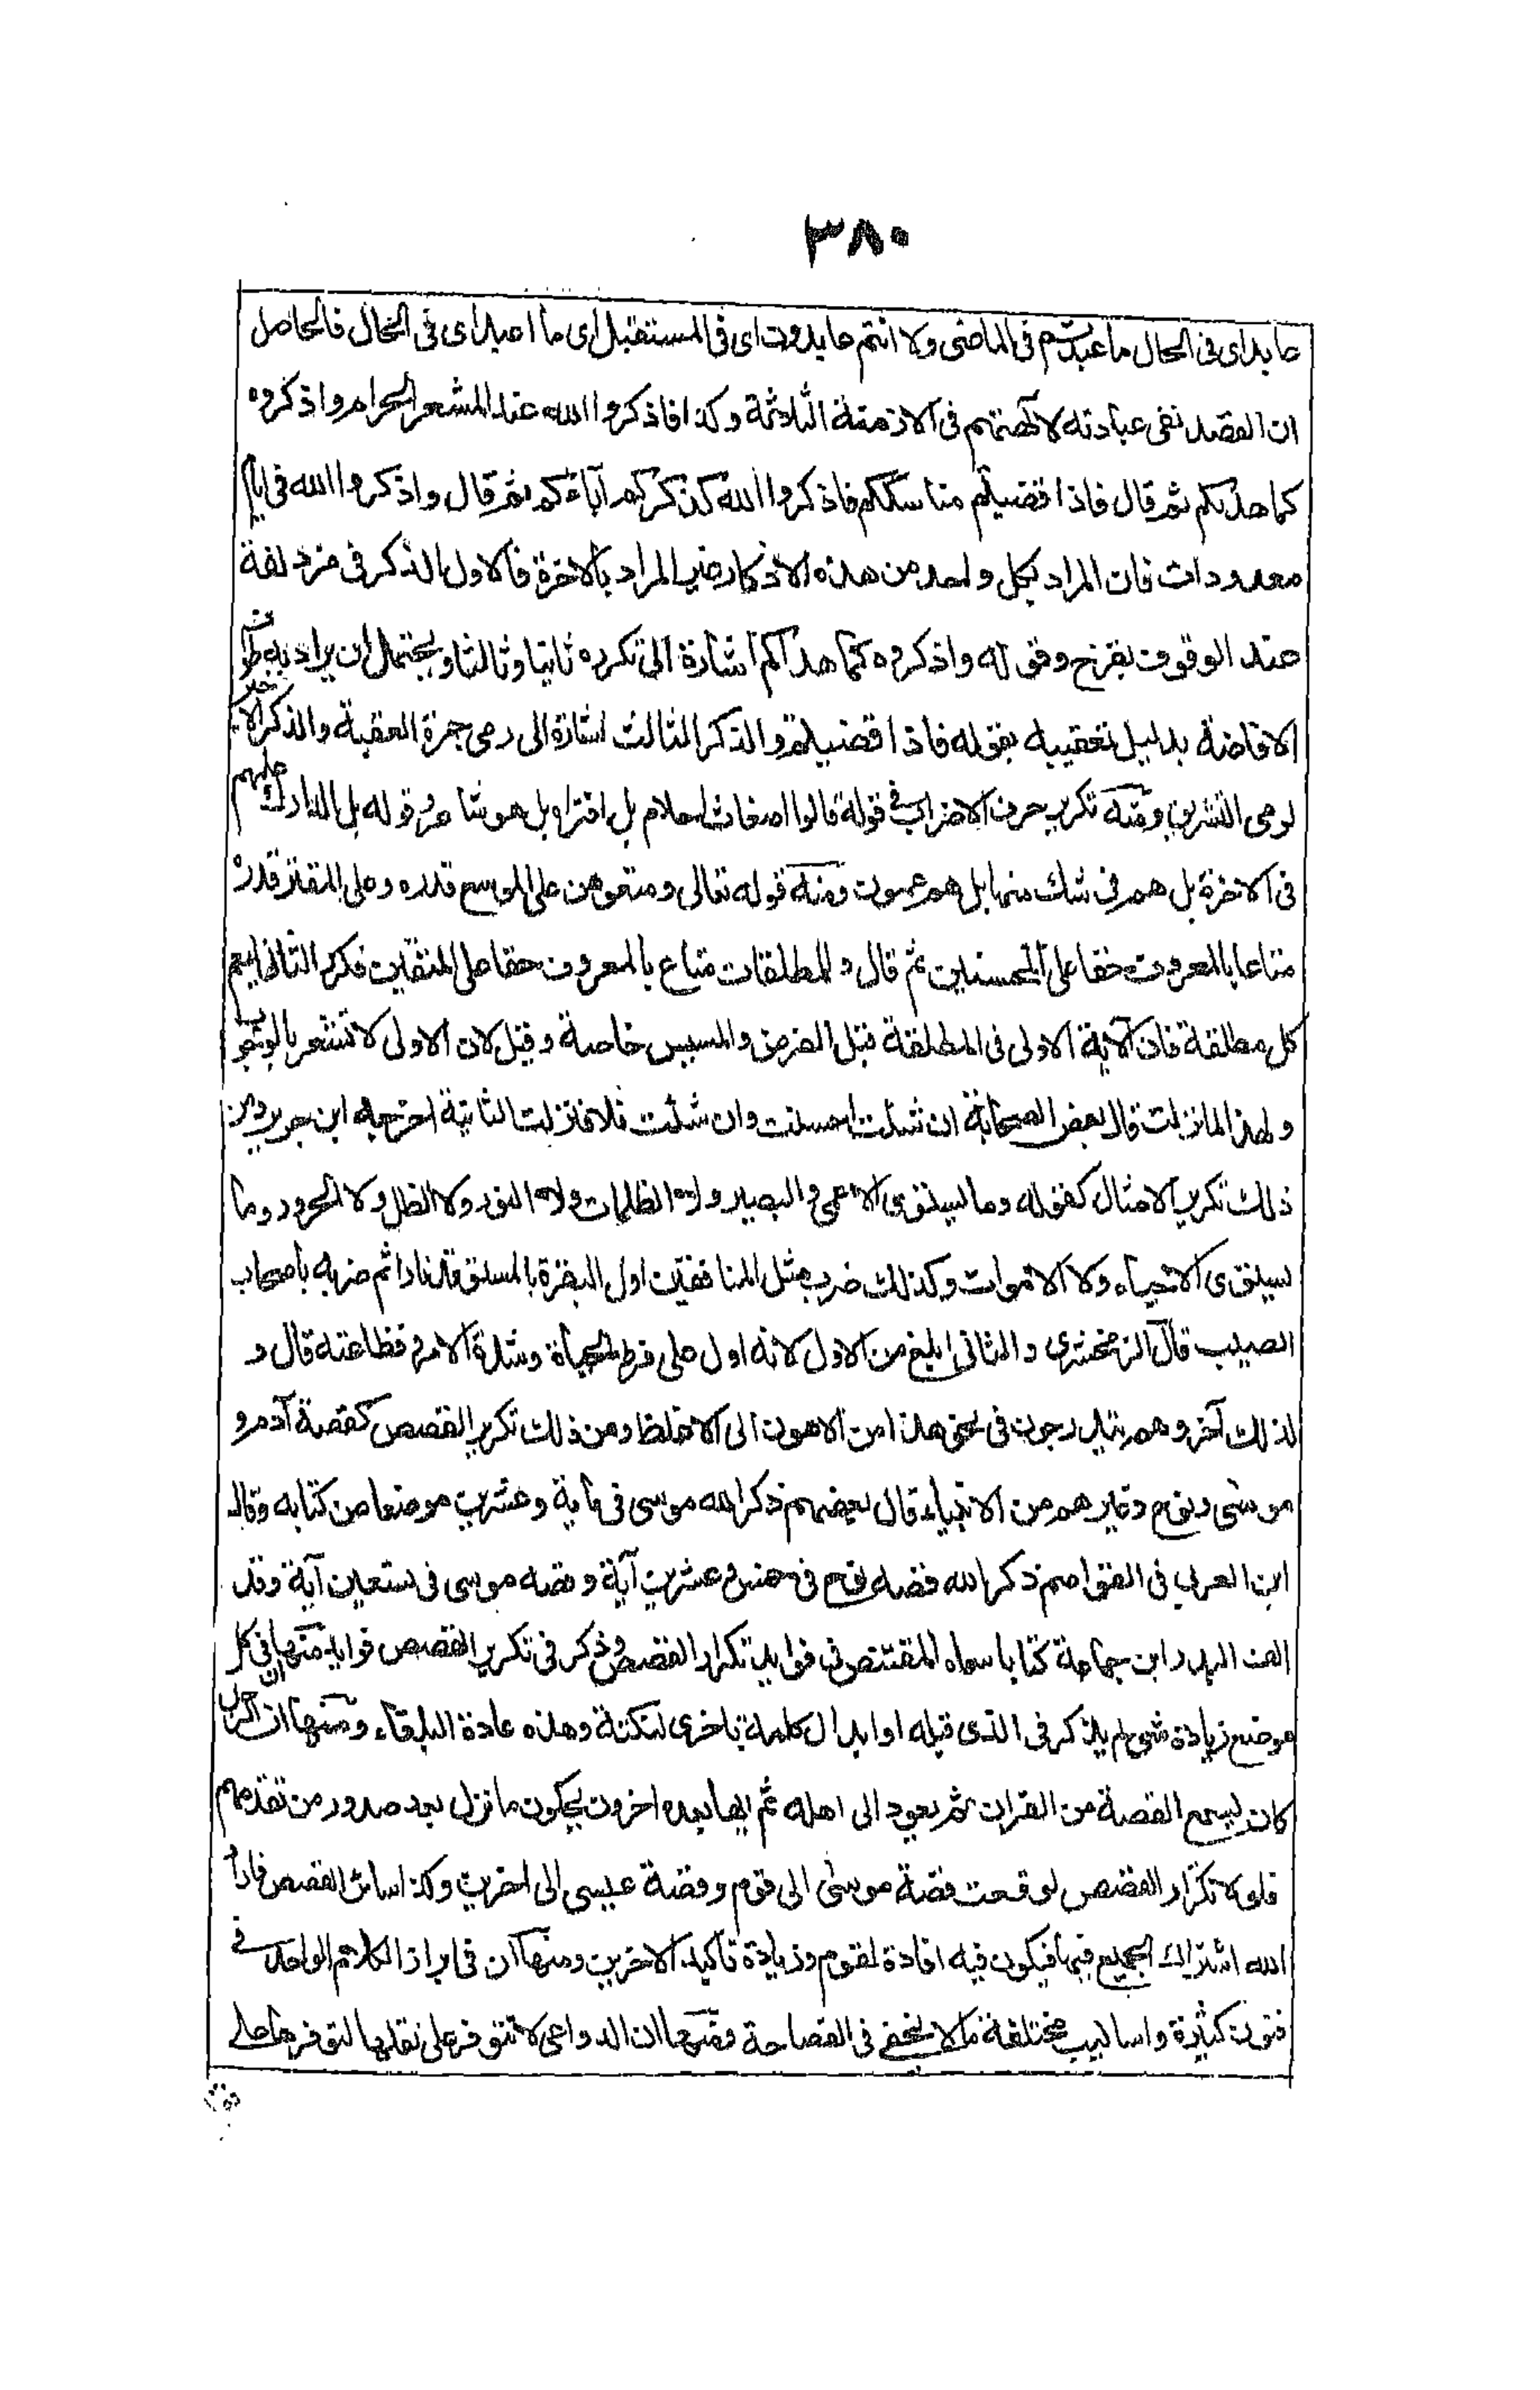 ٣٨٠
عابد اى فى الحال ما عبدتم فى الماضى ولا انتم عابدون اى فى المستقبل اى ما اعبد اى فى الحال فالحاصل
ان القصد نفى عبادته لآلهتهم فى الازمنة الثلاثة وكذا فاذكروا الله عند المشعر الحرام واذكروه
كما هدىكم ثم قال فاذا قضيتم مناسككم فاذكروا الله كذكركم آباءكم ثم قال واذكروا الله فى ايام
معدودات فان المراد بكل واحد من هذه الاذكار غير المراد بالاخرة فالاول الذكر فى مزدلفة
عند الوقوف بقزح وقوله واذكروه كما هداكم اشارة الى تكرره ثانيا وثالثا ويحتمل ان يراد به طواف
الافاضة بدليل تعقيبه بقوله فاذا قضيتم والذكر الثالث اشارة الى رمى جمرة العقبة والذكر الاخير
لرمى التشريق ومنه تكرير حرف الاضراب فى قوله قالوا اضغاث احلام بل افتراه بل هو شاعر وقوله بل ادارك علمهم
فى الاخرة بل هم فى شك منها بل هم عمون ومنه قوله تعالى ومتعوهن على الموسع قدره وعلى المقتر قدره
متاعا بالمعروف حقا على المحسنين ثم قال وللمطلقات متاع بالمعروف حقا على المتقين فكرر الثانى ليعم
كل مطلقة فان الآية الاولى فى المطلقة قبل الفرض والمسيس خاصة وقيل لان الاولى لا تشعر بالوجوب
ولهذا لما نزلت قال بعض الصحابة ان شئت احسنت وان شئت فلا فنزلت الثانية اخرجه ابن جرير ومن
ذلك تكرير الامثال كقوله وما يستوى الاعمى والبصير ولا الظلمات ولا النور ولا الظل ولا الحرور وما
يستوى الاحياء ولا الاموات وكذلك ضرب مثل المنافقين اول البقرة بالمستوقد نارا ثم ضربه باصحاب
الصيب قال الزمخشرى والثانى ابلغ من الاول لانه ادل على فرط الحيرة وشدة الامر وفظاعته قال و
لذلك آخر وهم يتدرجون فى نحو هذا من الاهون الى الاغلظ ومن ذلك تكرير القصص كقصة آدم و
موسى ونوح وغيرهم من الانبياء قال بعضهم ذكر الله موسى فى ماية وعشرين موضعا من كتابه وقال
ابن العربى فى القواصم ذكر الله قصه نوح فى خمس وعشرين آية وقصه موسى فى تسعين آية وقد
الف البدر ابن جماعة كتابا سماه المقتنص فى فوايد تكرار القصص وذكر فى تكرير القصص فوايد منها ان فى كل
موضع زيادة شئ لم يذكر فى الذى قبله او ابدال كلمة باخرى لنكتة وهذه عادة البلغاء ومنها ان الرجل
كان يسمع القصة من القران ثم يعود الى اهله ثم يهاجر بعده اخرون يحكون ما نزل بعد صدور من تقدمهم
فلولا تكرار القصص لوقعت قصة موسى الى قوم وقصة عيسى الى اخرين وكذا سائر القصص فاراد
الله اشتراك الجميع فيها فيكون فيه افادة لقوم وزيادة تاكيد لاخرين ومنها ان فى ابراز الكلام الواحد فى
فنون كثيرة واساليب مختلفة ما لا يخفى فى الفصاحة ومنها ان الدواعى لا تتوفر على نقلها لتوفرها على